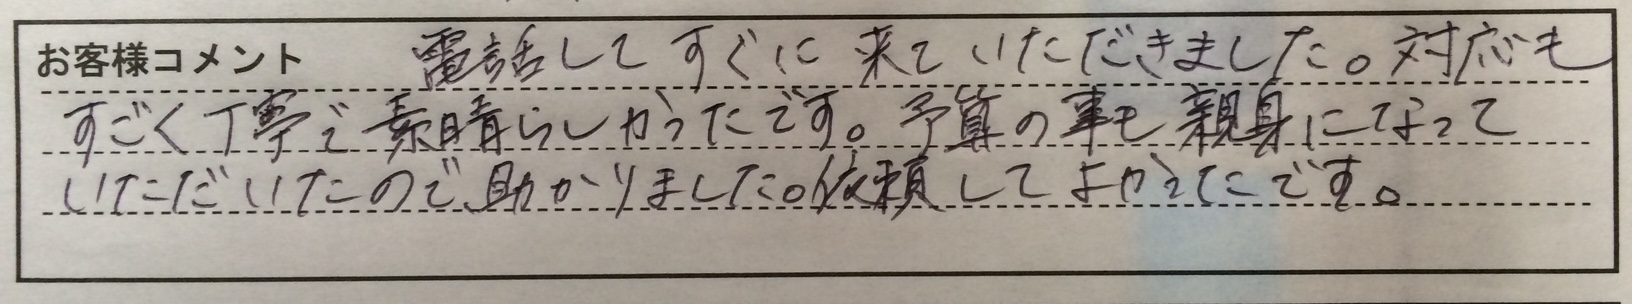 お客様コメント 電話してすぐに来ていただきました。対応も
すごく丁寧で素晴らしかったです。予算の事も親身になって
いただいたので、助かりました。依頼してよかったです。